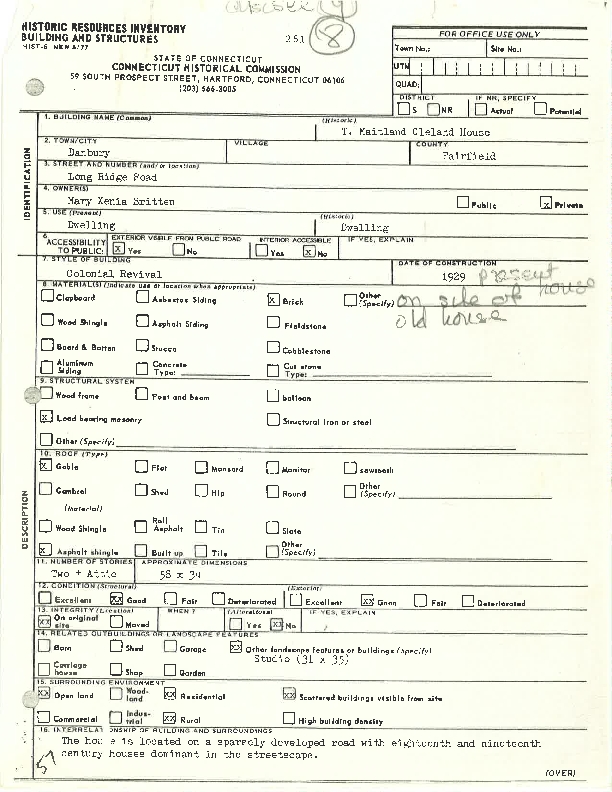 HISTORIC RESOURCES INVENTORY
BUILDING AND STRUCTURES
HIST-6 NEW 9/77
251
8
FOR OFFICE USE ONLY
Town No.: Site No.:
UTM
QUAD:
DISTRICT IF NR, SPECIFY
S NR Actual Potential
STATE OF CONNECTICUT
CONNECTICUT HISTORICAL COMMISSION
59 SOUTH PROSPECT STREET, HARTFORD, CONNECTICUT 06106
(203) 566-3005
IDENTIFICATION
1. BUILDING NAME (Common) (Historic)
T. Maitland Cleland House
2. TOWN/CITY VILLAGE COUNTY
Danbury Fairfield
3. STREET AND NUMBER (and/or location)
Long Ridge Road
4. OWNER(S)
Mary Xenia Britten Public X Private
5. USE (Present) (Historic)
Dwelling Dwelling
6. ACCESSIBILITY TO PUBLIC: EXTERIOR VISIBLE FROM PUBLIC ROAD INTERIOR ACCESSIBLE IF YES, EXPLAIN
X Yes No Yes X No
DESCRIPTION
7. STYLE OF BUILDING DATE OF CONSTRUCTION
Colonial Revival 1929 present house
on site of
old house
8. MATERIAL(S) (Indicate use or location when appropriate)
Clapboard Asbestos Siding X Brick Other (Specify)
Wood Shingle Asphalt Siding Fieldstone
Board & Batten Stucco Cobblestone
Aluminum Siding Concrete Type: Cut stone Type:
9. STRUCTURAL SYSTEM
Wood frame Post and beam balloon
X Load bearing masonry Structural iron or steel
Other (Specify)
10. ROOF (Type)
X Gable Flat Mansard Monitor sawtooth
Gambrel Shed Hip Round Other (Specify)
(Material)
Wood Shingle Roll Asphalt Tin Slate
X Asphalt shingle Built up Tile Other (Specify)
11. NUMBER OF STORIES APPROXIMATE DIMENSIONS
Two + Attic 58 x 34
12. CONDITION (Structural) (Exterior)
Excellent XX Good Fair Deteriorated Excellent XX Good Fair Deteriorated
13. INTEGRITY (Location) WHEN? (Alterations) IF YES, EXPLAIN
XX On original site Moved Yes XX No
14. RELATED OUTBUILDINGS OR LANDSCAPE FEATURES
Barn Shed Garage XX Other landscape features or buildings (Specify)
Studio (31 x 35)
Carriage house Shop Garden
15. SURROUNDING ENVIRONMENT
XX Open land Woodland XX Residential XX Scattered buildings visible from site
Commercial Industrial XX Rural High building density
16. INTERRELATIONSHIP OF BUILDING AND SURROUNDINGS
The house is located on a sparcly developed road with eighteenth and nineteenth
century houses dominant in the streetscape.
(OVER)